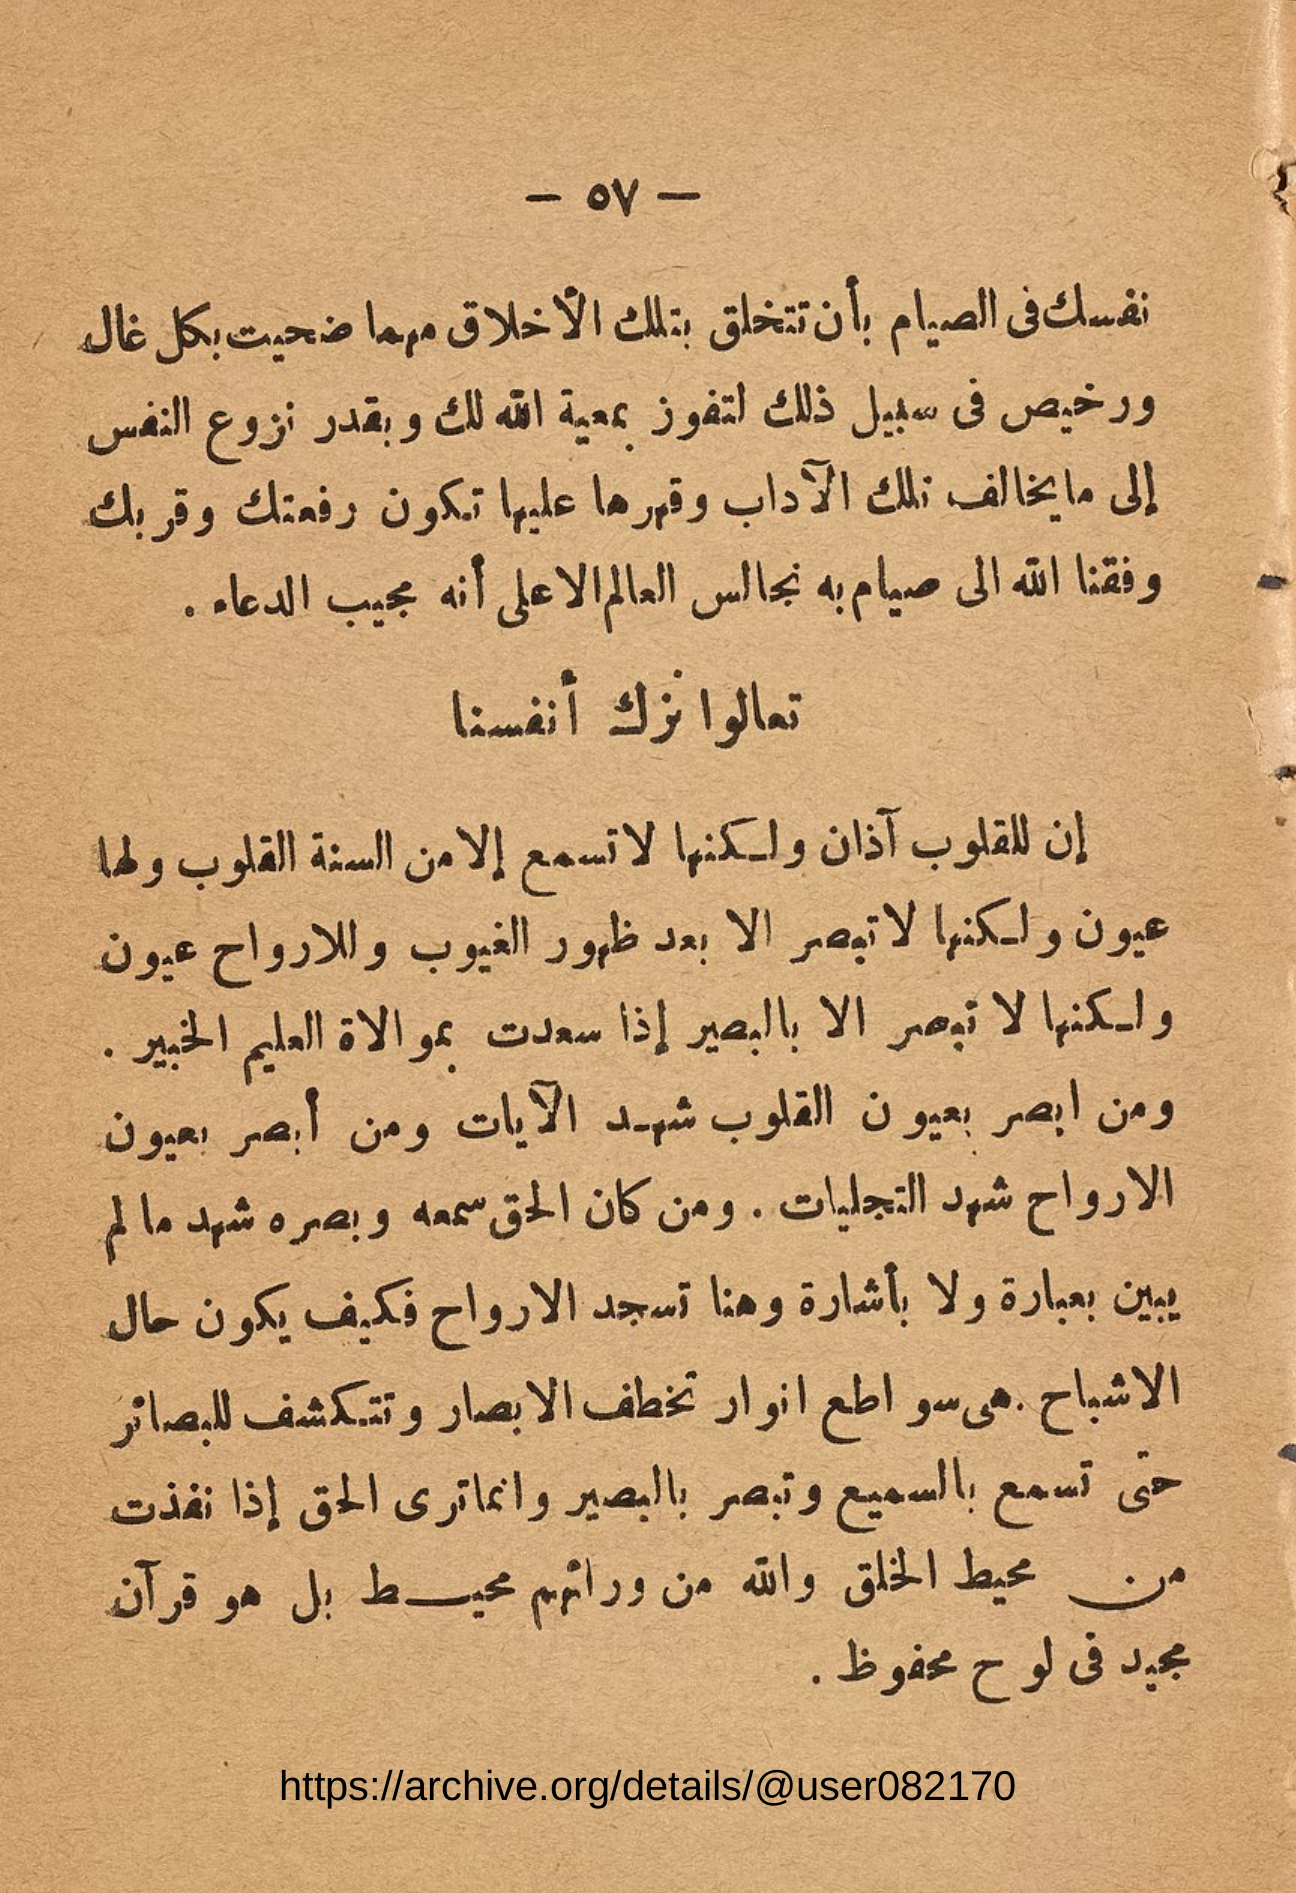 — ٥٧ —
نفسك فى الصيام بأن تتخلق بتلك الأخلاق مهما ضحيت بكل غال
ورخيص فى سبيل ذلك لتفوز بمعية الله لك وبقدر نزوع النفس
إلى ما يخالف تلك الآداب وقهرها عليها تكون رفعتك وقربك
وفقنا الله الى صيام به نجالس العالم الاعلى أنه مجيب الدعاء .
تعالوا نزك أنفسنا
إن للقلوب آذان ولكنها لا تسمع إلا من السنة القلوب ولها
عيون ولكنها لا تبصر الا بعد ظهور الغيوب وللارواح عيون
ولكنها لا تبصر الا بالبصير إذا سعدت بموالاة العليم الخبير .
ومن ابصر بعيون القلوب شهد الآيات ومن أبصر بعيون
الارواح شهد التجليات . ومن كان الحق سمعه وبصره شهد ما لم
يبين بعبارة ولا بأشارة وهنا تسجد الارواح فكيف يكون حال
الاشباح . هى سواطع انوار تخطف الابصار وتتكشف للبصائر
حتى تسمع بالسميع وتبصر بالبصير وانما ترى الحق إذا نفذت
من محيط الخلق والله من ورائهم محيط بل هو قرآن
مجيد فى لوح محفوظ .
https://archive.org/details/@user082170